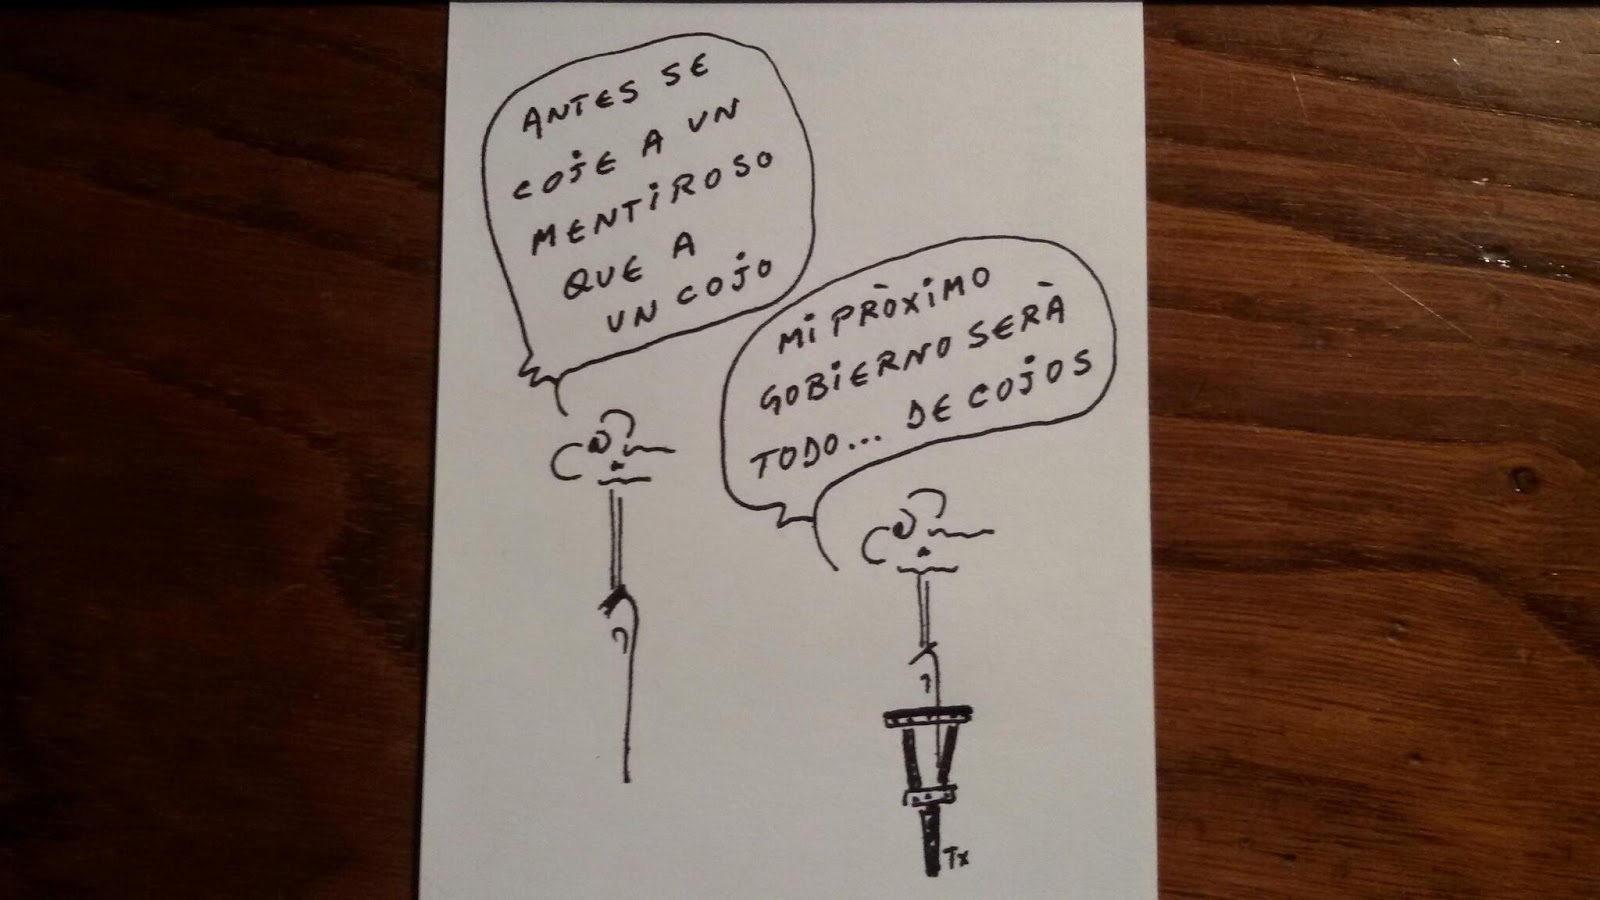 ANTES SE
COJE A UN
MENTIROSO
QUE A
UN COJO
MI PRÒXIMO
GOBIERNO SERÀ
TODO... DE COJOS
Tx